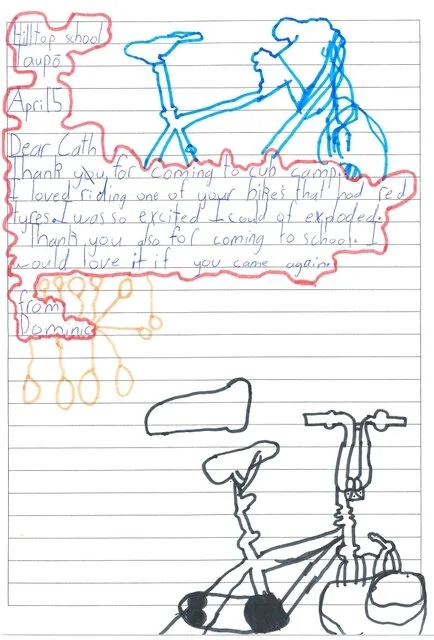 Hilltop school
Taupō
April 5
Dear Cath
Thank you for coming to cub camp.
I loved riding one of your bikes that had red
tyres. I was so excited I could of exploded.
Thank you also for coming to school. I
would love it if you came again.
from
Dominic